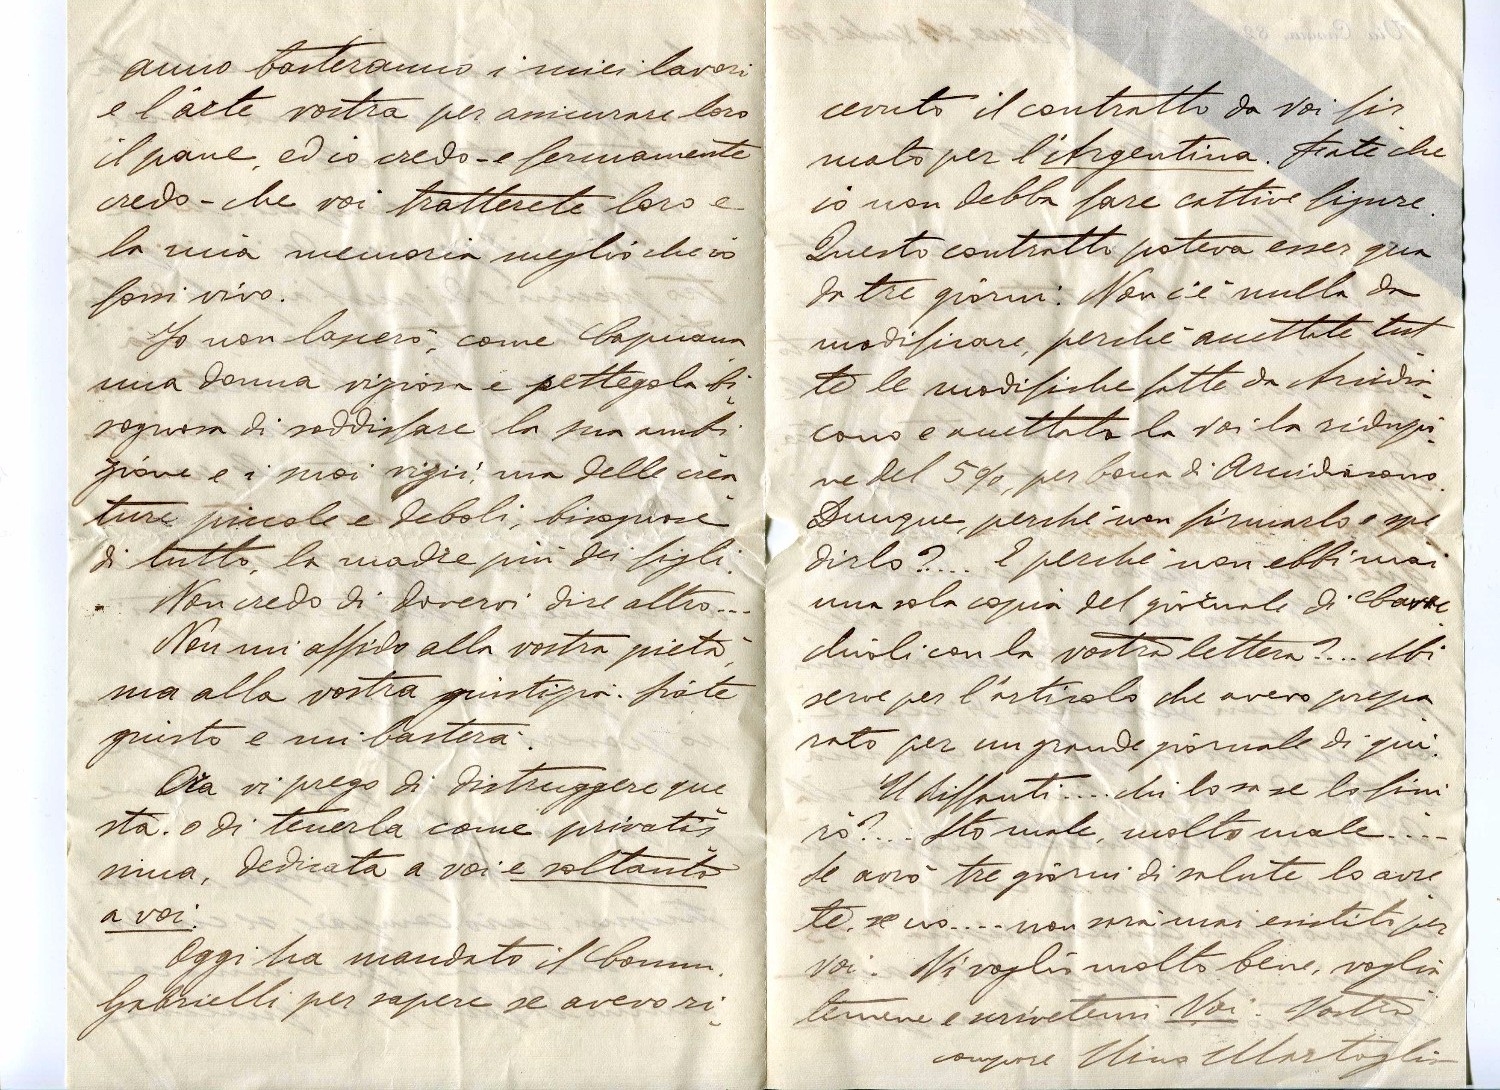 anno basteranno i miei lavori
e l'arte vostra per assicurare loro
il pane, ed io credo - e fermamente
credo - che voi tratterete loro e
la mia memoria meglio che io
fossi vivo.
Io non lascerò, come Capuana
una donna viziosa e pettegola bi-
sognosa di soddisfare la sua ambi
zione e i suoi vizii, ma delle crea
ture piccole e deboli, bisognose
di tutto, la madre più dei figli.
Non credo di dovervi dire altro....
Non mi affido alla vostra pietà,
ma alla vostra giustizia. Siate
giusto e mi basterà.
Ora vi prego di distruggere que
sta. o di tenerla come privatis
sima, dedicata a voi e soltanto
a voi.
Oggi ha mandato il Comm.
Gabrielli per sapere se avevo ri-
cevuto il contratto da voi fir
mato per l'Argentina. Fate che
io non debba fare cattive figure.
Questo contratto poteva esser qua
da tre giorni. Non c'è nulla da
modificare, perchè accettate tut
te le modifiche fatte da Arcidia-
cono e accettata la voi la riduzio-
ne del 5%, per bocca di Arcidiacono.
Dunque, perchè non firmarlo e spe
dirlo?.... E perchè non ebbi mai
una sola copia del giornale di
con la vostra lettera?.... Mi
serve per l'articolo che avevo prepa
rato per un grande giornale di qui.
U Riffanti.... chi lo sa se lo fini
rò?.... Sto male, molto male.....
Se avrò tre giorni di salute lo avre
te, se no.... non sarà mai esistito per
voi. Vi voglio molto bene, voglia
temene e scrivetemi Voi. Vostro
compare Nino Martoglio